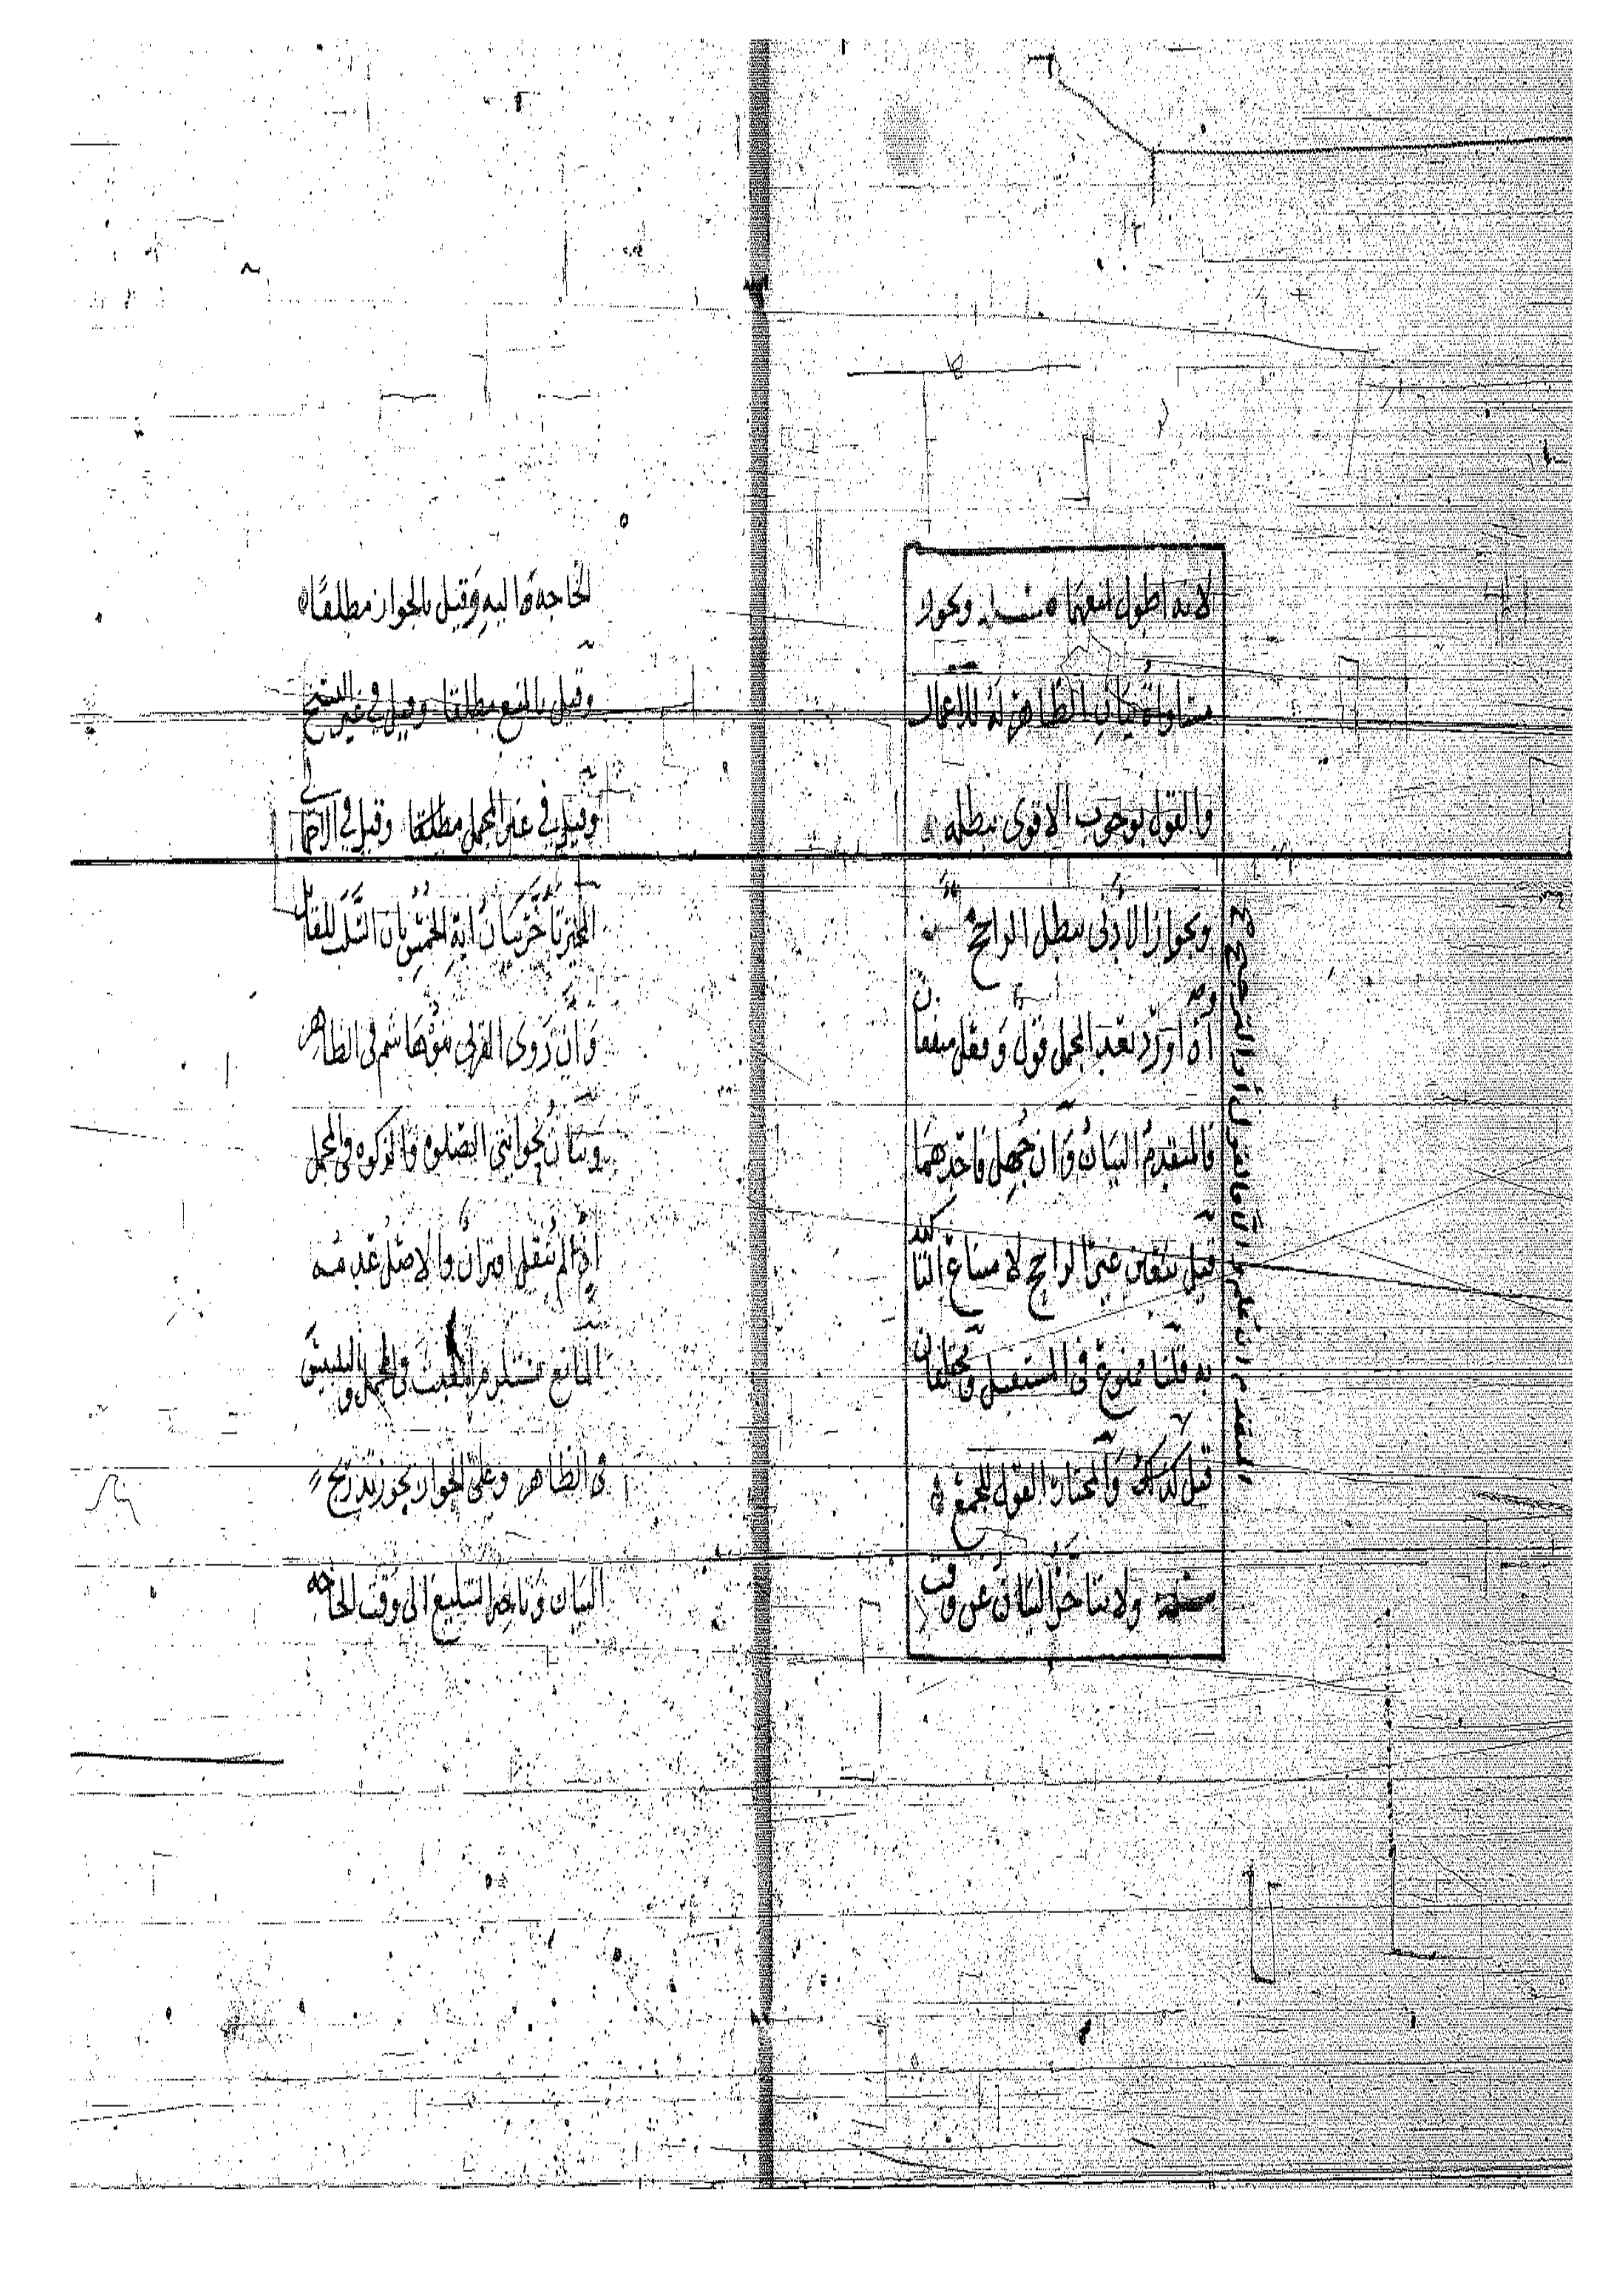 لانه اطول لنفعهما مسله ويجوز
مساواة بيان الظاهر له للاعمال
والقول بوجوب الاقوى يبطله
وبجواز الادنى يبطل الراجح
اذا ورد بعد المجمل قول وفعل متفقان
فالمتقدم البيان وان جهل فاحدهما
قيل يتعين غير الراجح لامتناع التاكيد
به قلنا ممنوع في المستقبل ومختلفان
قيل كذلك والمختار القول للجمع
مسئلة ولا يتاخر البيان عن وقت
المتقدم ان علم والا فالقول او الترجيح
الحاجة اليه وقيل بالجواز مطلقا
وقيل بالمنع مطلقا وقيل في غير النسخ
وقيل في غير المجمل مطلقا وقيل في الاجمالي
المجيز تاخر بيان اية الخمس بان السلب للقاتل
وان ذوي القربى بنو هاشم في الظاهر
وبيان نحو ايتي الصلوة والزكوة في المجمل
اذ لم ينقل اقتران والاصل عدمه
المانع يستلزم العبث في المجمل والتلبيس
في الظاهر وعلى الجواز يجوز تدريج
البيان وتاخير التبليغ الى وقت الحاجة